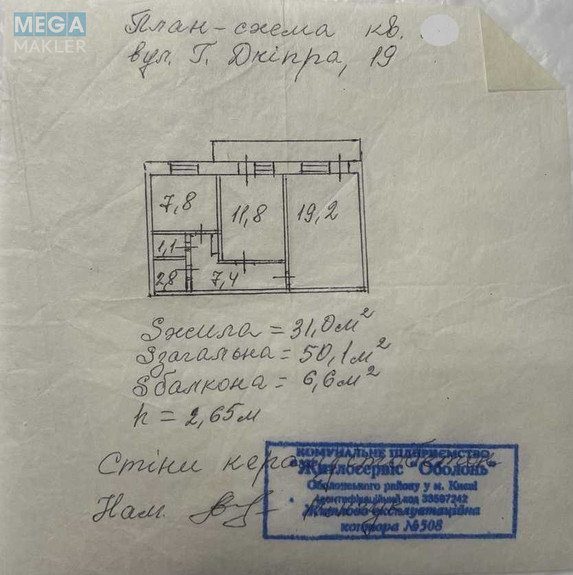 MEGA
MAKLER
План-схема кв.
вул. Г. Дніпра, 19
7,8
11,8
19,2
1,1
2,8
7,4
Sжила = 31,0 м²
Sзагальна = 50,1 м²
Sбалкона = 6,6 м²
h = 2,65 м
Стіни
КОМУНАЛЬНЕ ПІДПРИЄМСТВО
"Житлосервіс "Оболонь"
Оболонського району у м. Києві
Ідентифікаційний код 33597242
Житлово-експлуатаційна
контора №508
Нам.